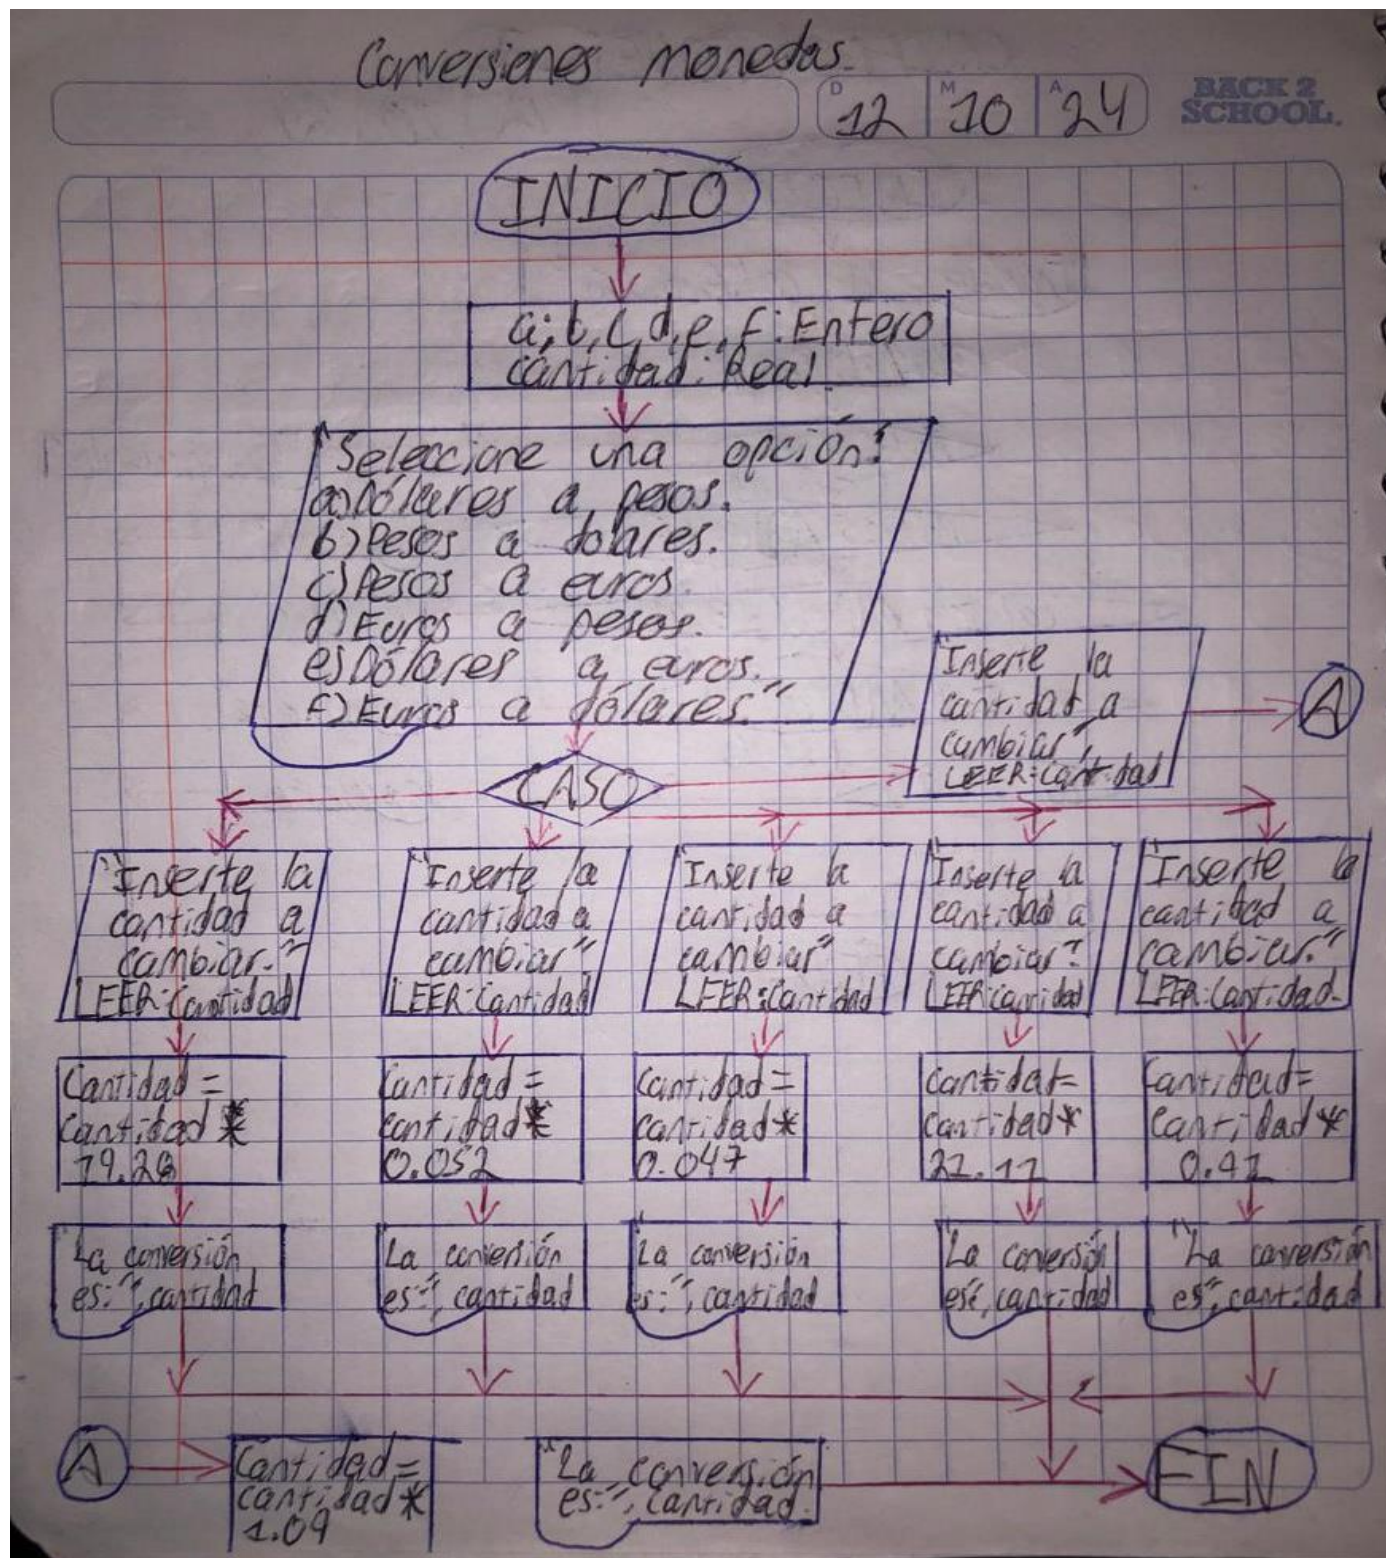 Conversiones monedas.
D 12 M 10 A 24
BACK 2
SCHOOL.
INICIO
a, b, c, d, e, F: Entero
cantidad: Real.
"Seleccione una opción:
a) Dólares a pesos.
b) Pesos a dolares.
c) Pesos a euros.
d) Euros a pesos.
e) Dólares a euros.
F) Euros a dólares."
"Inserte la
cantidad a
cambiar",
LEER: Cantidad
A
CASO
"Inserte la
cantidad a
cambiar."
LEER: Cantidad
"Inserte la
cantidad a
cambiar"
LEER: Cantidad
"Inserte la
cantidad a
cambiar"
LEER: Cantidad
"Inserte la
cantidad a
cambiar"
LEER: Cantidad
"Inserte la
cantidad a
cambiar."
LEER: Cantidad.
Cantidad =
cantidad *
Cantidad =
cantidad *
0.052
Cantidad =
cantidad *
0.047
Cantidad =
cantidad *
21.11
Cantidad =
cantidad *
"La conversión
es:", cantidad
"La conversión
es:", cantidad
"La conversión
es:", cantidad
"La conversión
es", cantidad
"La conversión
es", cantidad
A
Cantidad =
cantidad *
1.09
"La conversión
es:", cantidad.
FIN